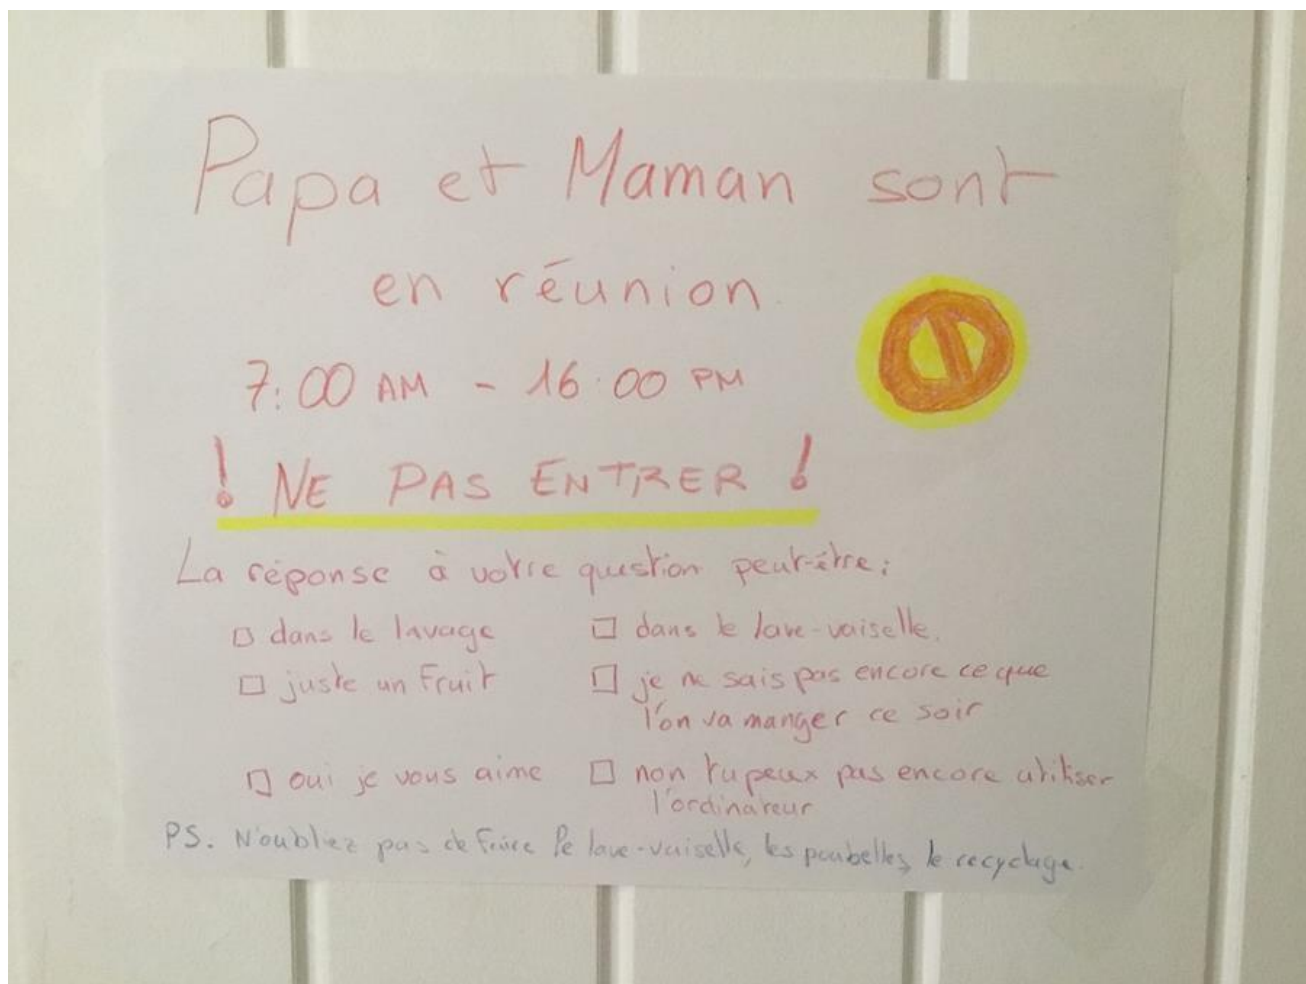 Papa et Maman sont
en réunion.
7:00 AM - 16:00 PM
! NE PAS ENTRER !
La réponse à votre question peut-être:
□ dans le lavage □ dans le lave-vaiselle.
□ juste un fruit □ je ne sais pas encore ce que
l'on va manger ce soir
□ oui je vous aime □ non tu peux pas encore utiliser
l'ordinateur
PS. N'oubliez pas de faire le lave-vaiselle, les poubelles, le recyclage.